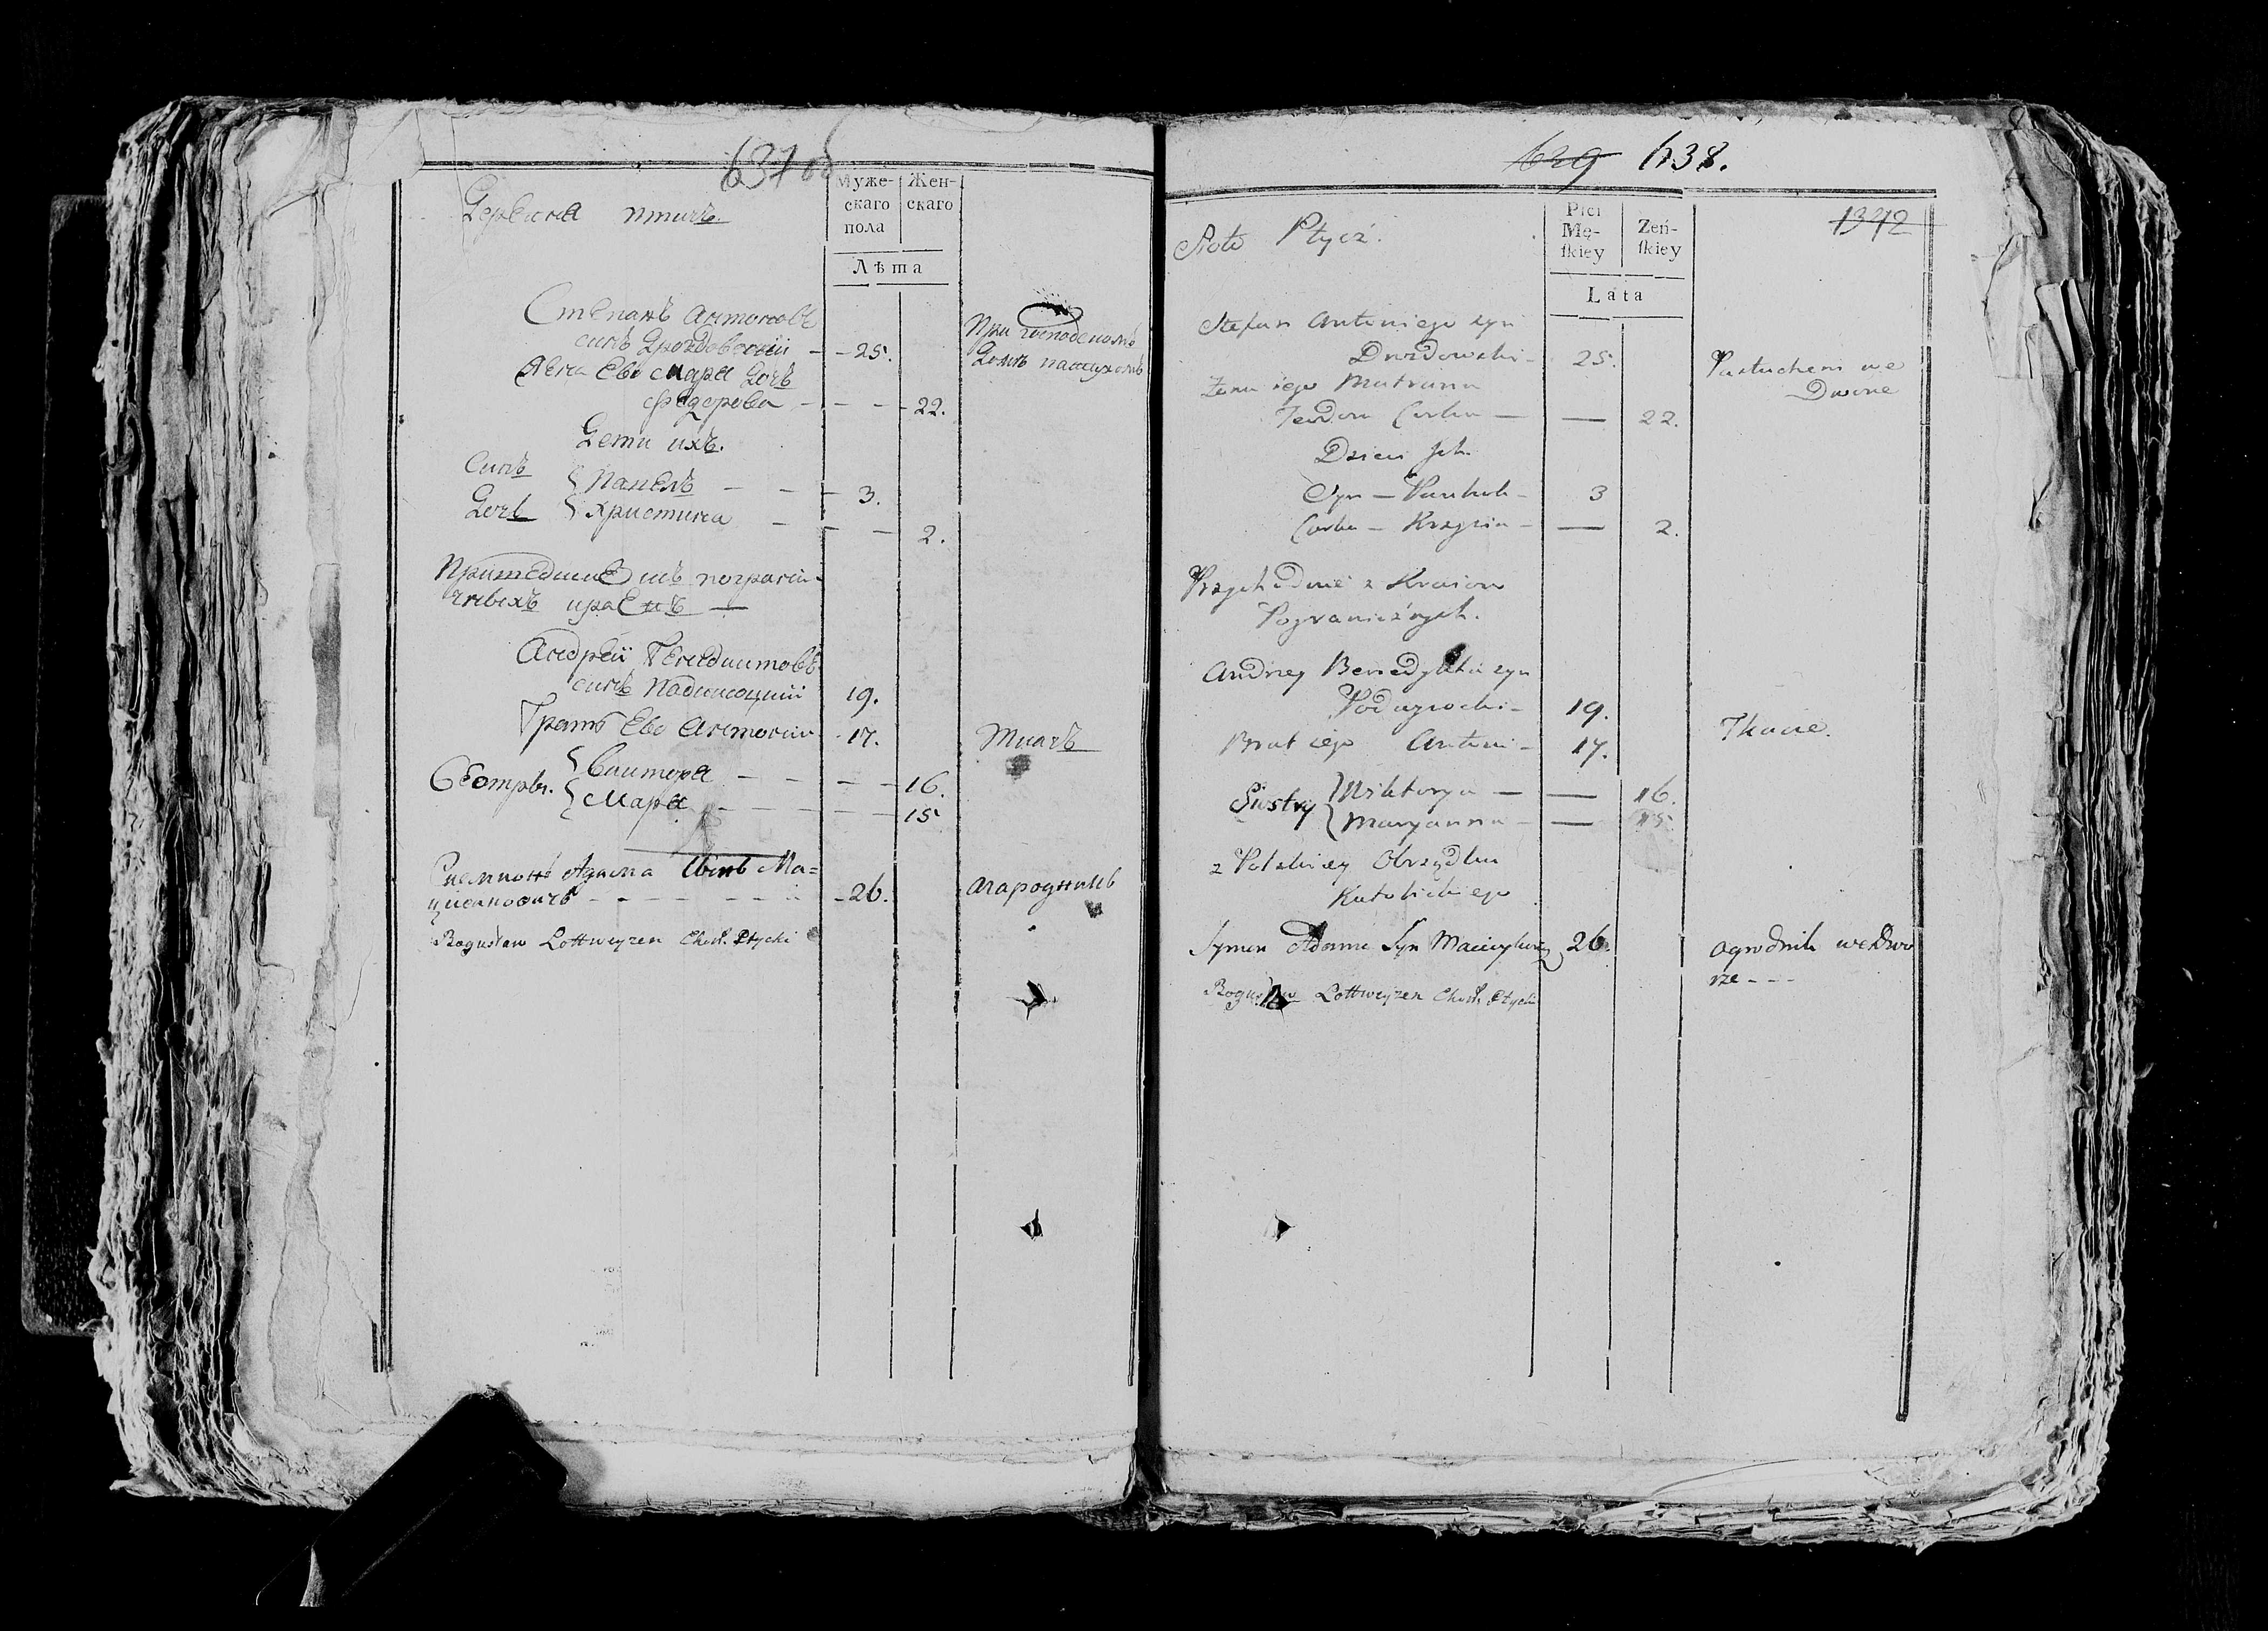 637 об
Деревня птичъ.
Муже-
скаго
пола
Жен-
скаго
Лѣта
Степанъ Антоновъ
синъ Дроздовский 25.
При господскомъ
Доме пастухомъ
Жена Ево Мара Дочъ
Федорова 22.
Дети ихъ.
Синъ Панелъ 3.
Дочъ Християна 2.
Пришедшие изъ погранич-
чныхъ краевъ
Андрей Бенедиктовъ
синъ 19.
Братъ Ево Антоний 17.
Ткачъ
Сестры. Виктора 16.
Мара 15
Адама сынъ Ма=
26.
агародникъ
Bogusław Lottweyzen Chor. Ptycki
629 638.
1372
Ptycź.
Płci
Mę-
ſkiey
Żeń-
ſkiey
Lata
Stefan Antoniego syn
Drozdowski 25.
Pastuchem we
Dworze
Żona iego Matrana
Teodora Corka — 22.
Dzieci Jch.
Syn — 3
Corka — Krystia — 2.
Przychodnié z Kraiow
Pogranicznych.
Andrzey Benedykta syn
19.
Brat iego Antoni — 17.
Tkacze.
Siostry Wiktorya — 16.
Maryanna — 15.
z Polskiey Obrządku
Katolickiego
Symon Adama Syn 26.
Ogrodnik we Dwo
rze - - -
Bogusław Lottweyzen Chor. Ptycki